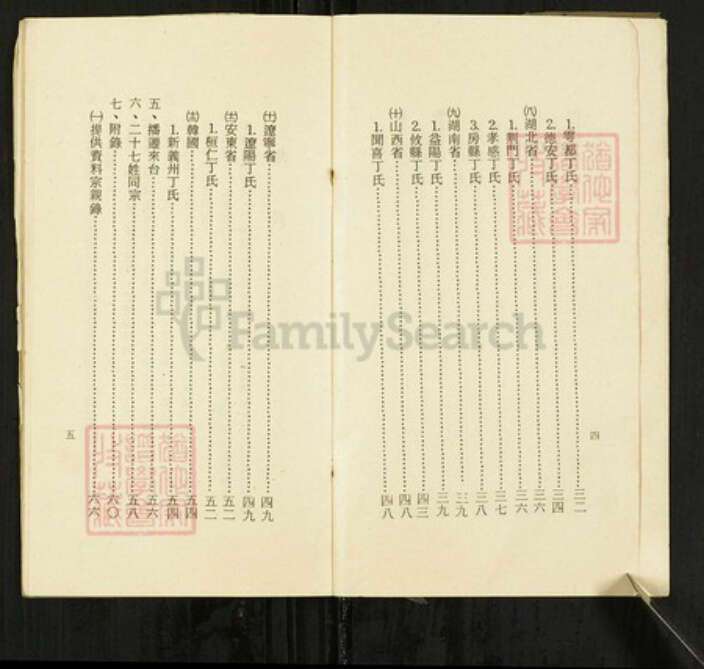 1.雩都丁氏……三二
2.德安丁氏……三四
㈧湖北省……三六
1.荆門丁氏……三六
2.孝感丁氏……三七
3.房縣丁氏……三八
㈨湖南省……三九
1.益陽丁氏……三九
2.攸縣丁氏……四三
㈩山西省……四八
1.聞喜丁氏……四八
四
遼寧省……四九
1.遼陽丁氏……四九
安東省……五二
1.桓仁丁氏……五二
韓國……五四
1.新義州丁氏……五四
五、播遷來台……五六
六、二十七姓同宗……五八
七、附錄……六〇
㈠提供資料宗親錄……六六
五
FamilySearch